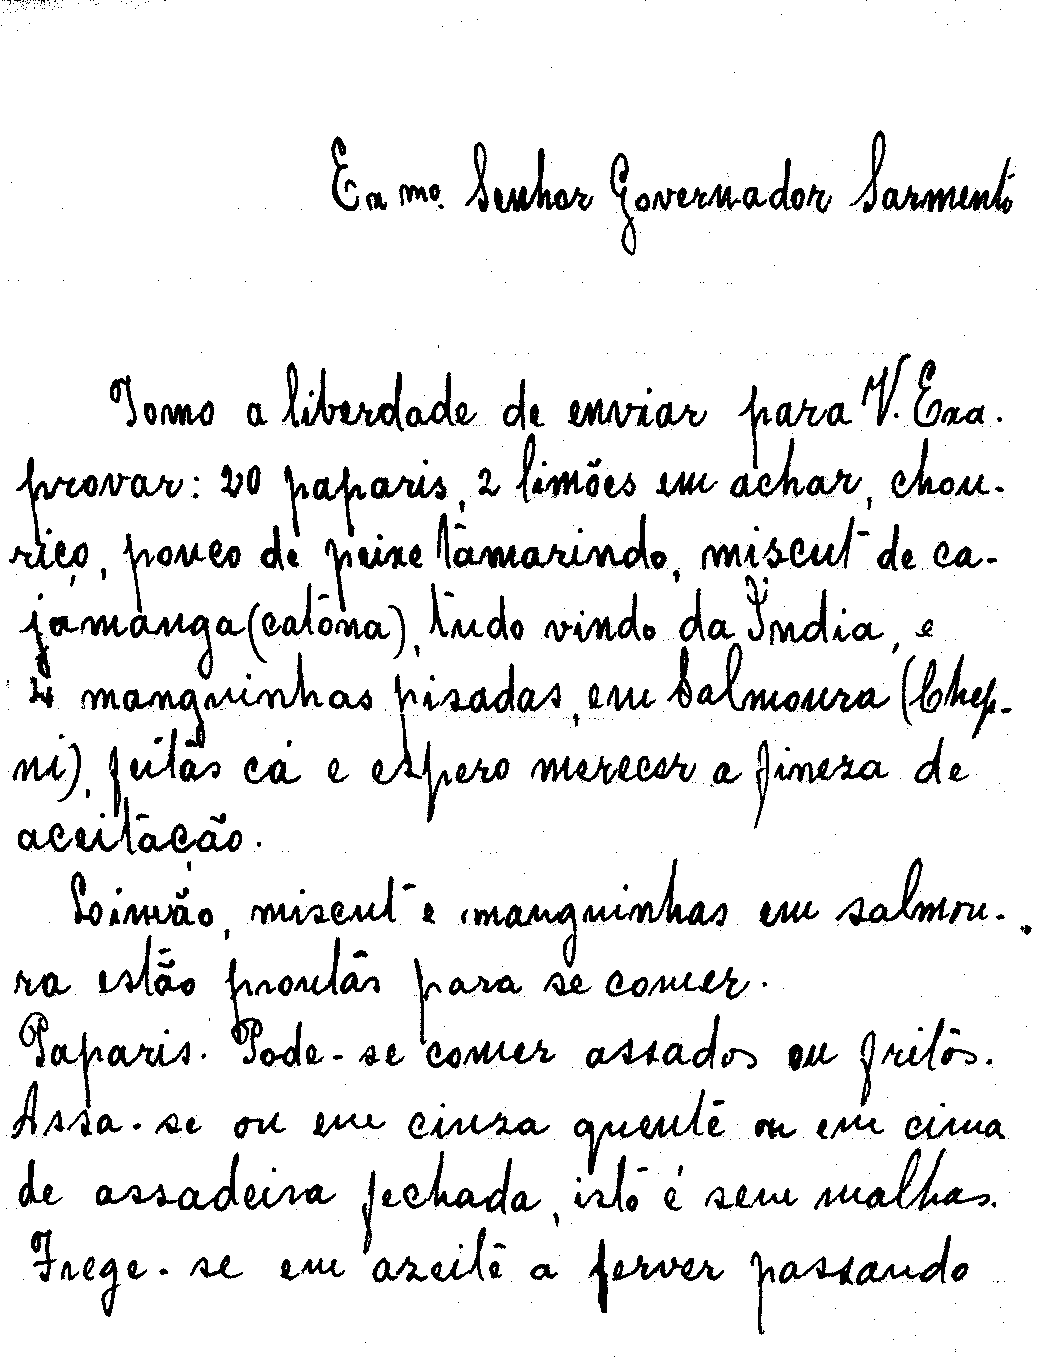 Exmo. Senhor Governador Sarmento
Tomo a liberdade de enviar para V. Exa.
provar: 20 paparis, 2 limões em achar, chou-
riço, pouco de peixe tamarindo, miscut de ca-
jamanga (catôna), tudo vindo da Índia, e
4 manguinhas pisadas, em Salmoura (Chep-
ni), feitas cá e espero merecer a fineza de
aceitação.
Loimão, miscut e manguinhas em salmou-
ra estão prontas para se comer.
Paparis. Pode-se comer assados ou fritos.
Assa-se ou em cinza quente ou em cima
de assadeira fechada, isto é sem malhas.
Frege-se em azeite a ferver passando